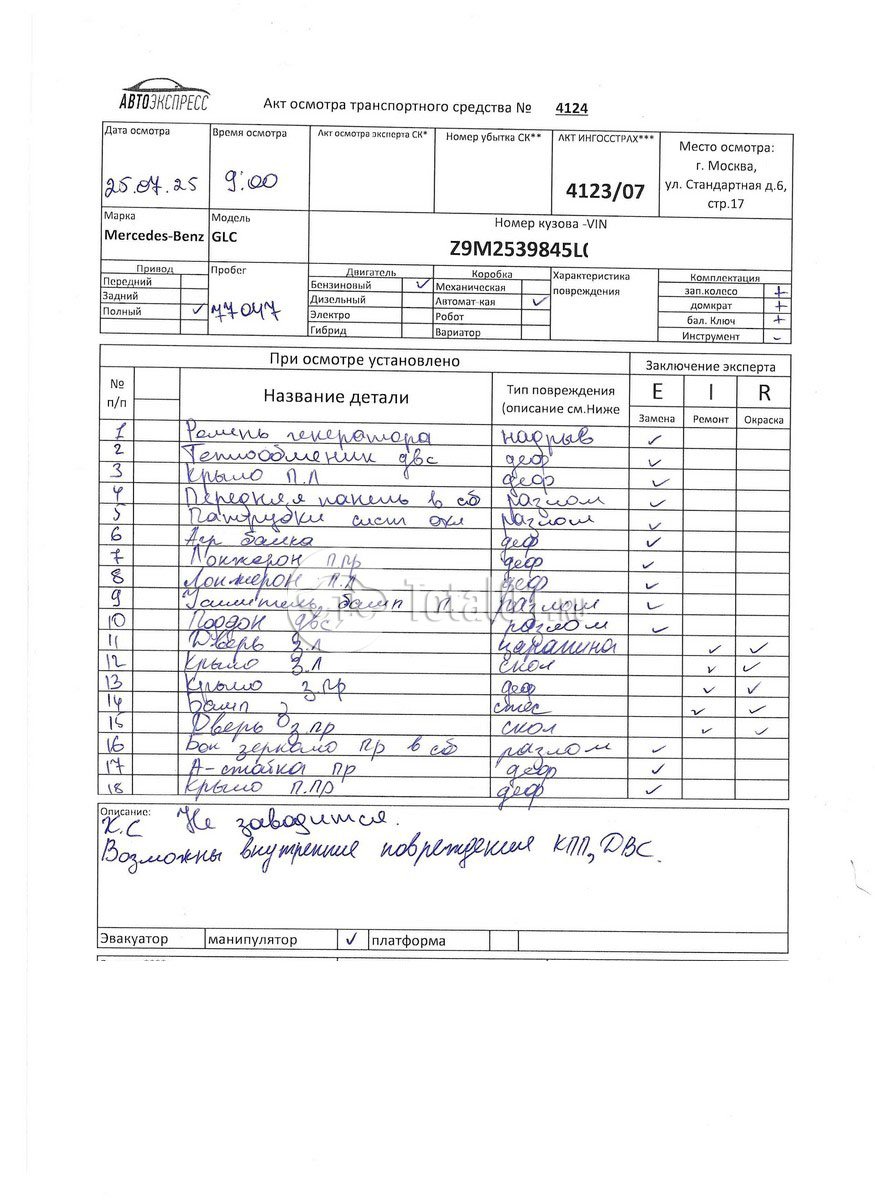 АВТОЭКСПРЕСС
Акт осмотра транспортного средства № 4124
Дата осмотра Время осмотра Акт осмотра эксперта СК* Номер убытка СК** АКТ ИНГОССТРАХ*** Место осмотра:
г. Москва,
25.07.25 9:00 4123/07 ул. Стандартная д.6,
стр.17
Марка Модель Номер кузова -VIN
Mercedes-Benz GLC Z9M2539845L
Привод Пробег Двигатель Коробка Характеристика Комплектация
Передний Бензиновый ✓ Механическая повреждения зап.колесо +
Задний Дизельный Автомат-кая ✓ домкрат +
Полный ✓ 77047 Электро Робот бал. Ключ +
Гибрид Вариатор Инструмент -
При осмотре установлено Заключение эксперта
№ п/п Название детали Тип повреждения (описание см.Ниже E I R
Замена Ремонт Окраска
1 Ремень генератора надрыв ✓
2 Теплообменик двс деф ✓
3 Крыло П.Л деф ✓
4 Передняя панель в сб разлом ✓
5 Патрубки сист охл разлом ✓
6 Агр балка деф ✓
7 Лонжерон п.пр деф ✓
8 Лонжерон п.л деф ✓
9 Усилитель бамп п разлом ✓
10 Поддон двс разлом ✓
11 Дверь З.Л царапина ✓ ✓
12 Крыло З.Л скол ✓ ✓
13 Крыло З.пр деф ✓ ✓
14 Бамп З стес ✓ ✓
15 Дверь з.пр скол ✓ ✓
16 Бок зеркало пр в сб разлом ✓
17 А-стойка пр деф ✓
18 Крыло П.ПР деф ✓
TotalA .RU
Описание:
К.С Не заводится.
Возможны внутренние повреждения КПП, ДВС.
Эвакуатор манипулятор ✓ платформа